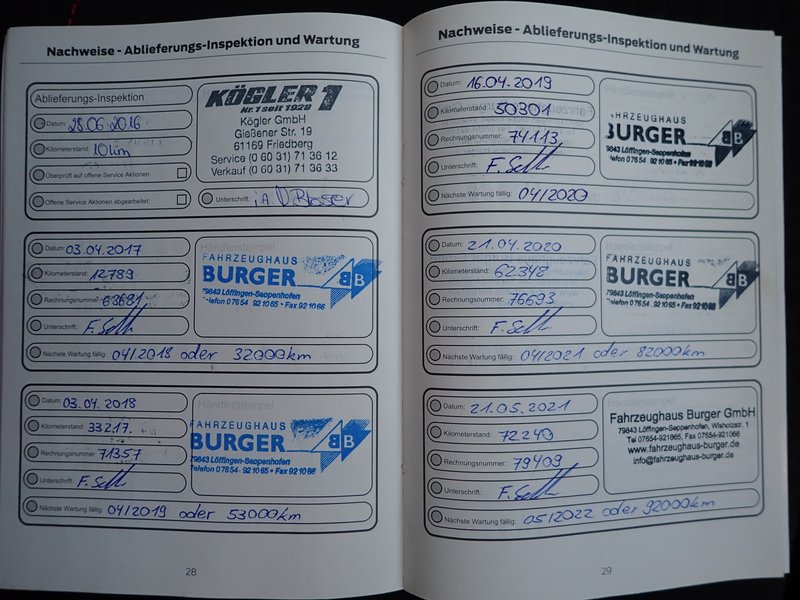 Nachweise - Ablieferungs-Inspektion und Wartung
Ablieferungs-Inspektion
Datum: 28.06.2016
Kilometerstand: 10km
Überprüft auf offene Service Aktionen:
Offene Service Aktionen abgearbeitet:
KÖGLER 1
Nr. 1 seit 1928
Kögler GmbH
Gießener Str. 19
61169 Friedberg
Service (0 60 31) 71 36 12
Verkauf (0 60 31) 71 36 33
Unterschrift: i.A.
Datum: 03.04.2017
Kilometerstand: 12789
Rechnungsnummer: 63681
Unterschrift:
Händlerstempel
FAHRZEUGHAUS
BURGER BB
79843 Löffingen-Seppenhofen
Telefon 07654 92 10 65 • Fax 92 10 66
Nächste Wartung fällig: 04/2018 oder 32000km
Datum: 03.04.2018
Kilometerstand: 33217.
Rechnungsnummer: 71357
Unterschrift:
Händlerstempel
FAHRZEUGHAUS
BURGER BB
79843 Löffingen-Seppenhofen
Telefon 07654 92 10 65 • Fax 92 10 66
Nächste Wartung fällig: 04/2019 oder 53000km
28
Nachweise - Ablieferungs-Inspektion und Wartung
Datum: 16.04.2019
Kilometerstand: 50301
Rechnungsnummer: 74113
Unterschrift:
FAHRZEUGHAUS
BURGER BB
79843 Löffingen-Seppenhofen
Telefon 07654 92 10 65 • Fax 92 10 66
Nächste Wartung fällig: 04/2020
Datum: 21.04.2020
Kilometerstand: 62348
Rechnungsnummer: 76693
Unterschrift:
Händlerstempel
FAHRZEUGHAUS
BURGER BB
79843 Löffingen-Seppenhofen
Telefon 07654 92 10 65 • Fax 92 10 66
Nächste Wartung fällig: 04/2021 oder 82000km
Datum: 21.05.2021
Kilometerstand: 72240
Rechnungsnummer: 79409
Unterschrift:
Händlerstempel
Fahrzeughaus Burger GmbH
79843 Löffingen-Seppenhofen, Wisholzstr. 1
Tel 07654-921065, Fax 07654-921066
www.fahrzeughaus-burger.de
info@fahrzeughaus-burger.de
Nächste Wartung fällig: 05/2022 oder 92000km
29